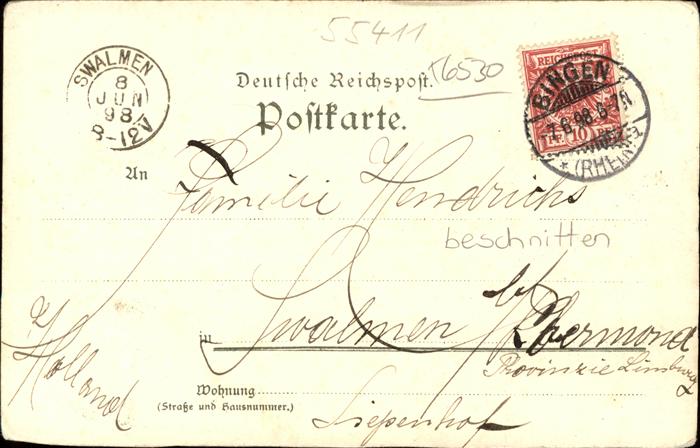 55411
16530
SWALMEN
8
JUN
98
8-12V
Deutsche Reichspost.
Postkarte.
REICHSPOST
10
BINGEN
7.6.98.6-7N
* (RHEIN)
An
Familie Hendrichs
beschnitten
in Swalmen b/ Roermond
Provinzie Limburg
Holland
Wohnung
(Straße und Hausnummer.)
Liepenhof